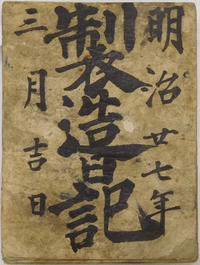 明治廿七年
製造記
三月吉日